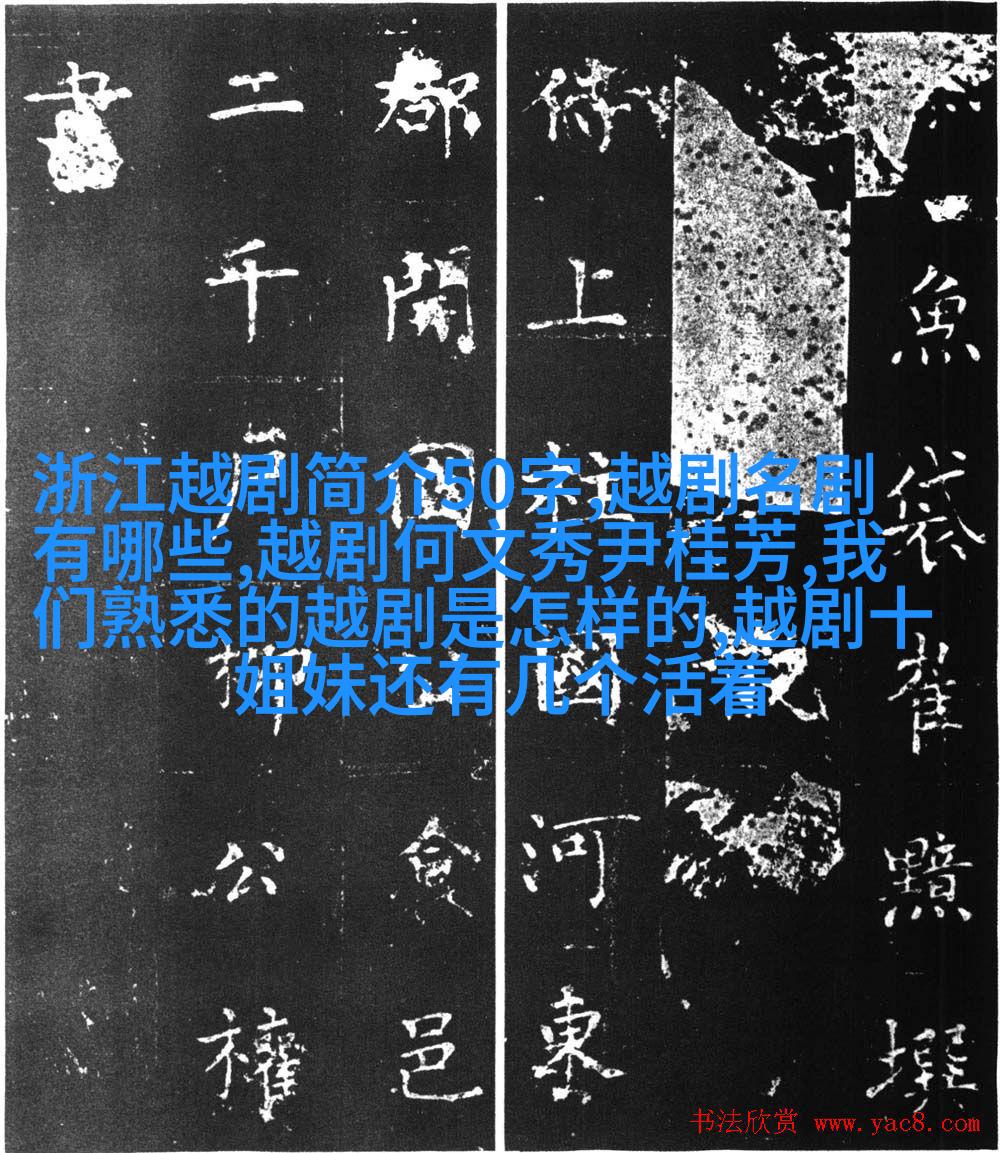 魚袋崔黯撰
侍上柱國河東
都開國食邑
二千戶柳公權
書
浙江越剧简介50字,越剧名剧
有哪些,越剧何文秀尹桂芳,我
们熟悉的越剧是怎样的,越剧十
姐妹还有几个活着
书法欣赏 www.yac8.com